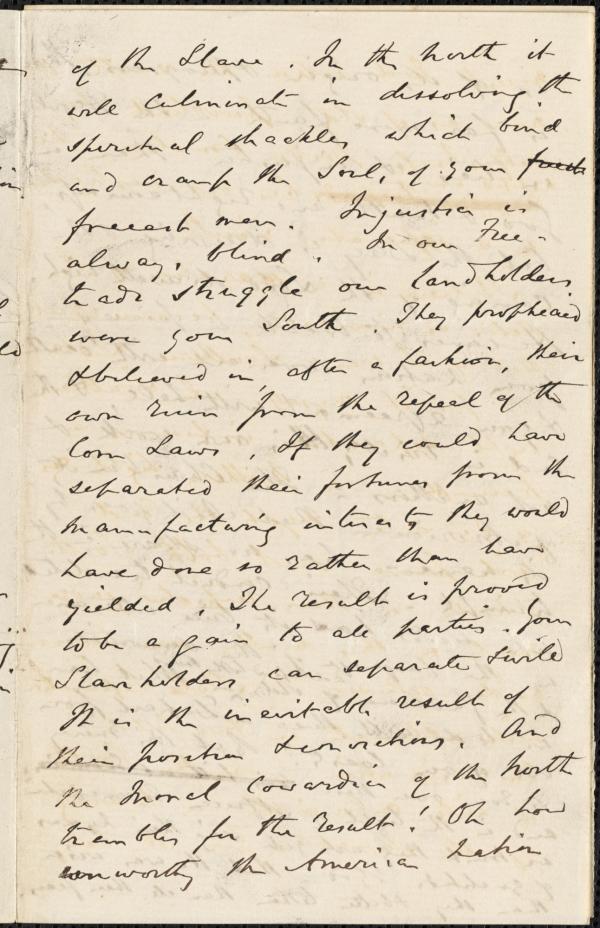 of the Slave. In the North it
will culminate in dissolving the
spiritual shackles which bind
and cramp the Souls of your
freeest men. Injustice is
always blind. In our Free-
trade struggle our landholders
were your South. They prophesied
& believed in, after a fashion, their
own ruin from the repeal of the
Corn Laws. If they could have
separated their fortunes from the
manufacturing interests they would
have done so rather than have
yielded. The result is proved
to be a gain to all parties. Your
Slaveholders can separate & will
It is the inevitable result of
their position & convictions. And
the moral Cowardice of the North
trembles for the result! Oh how
unworthy the American Nation